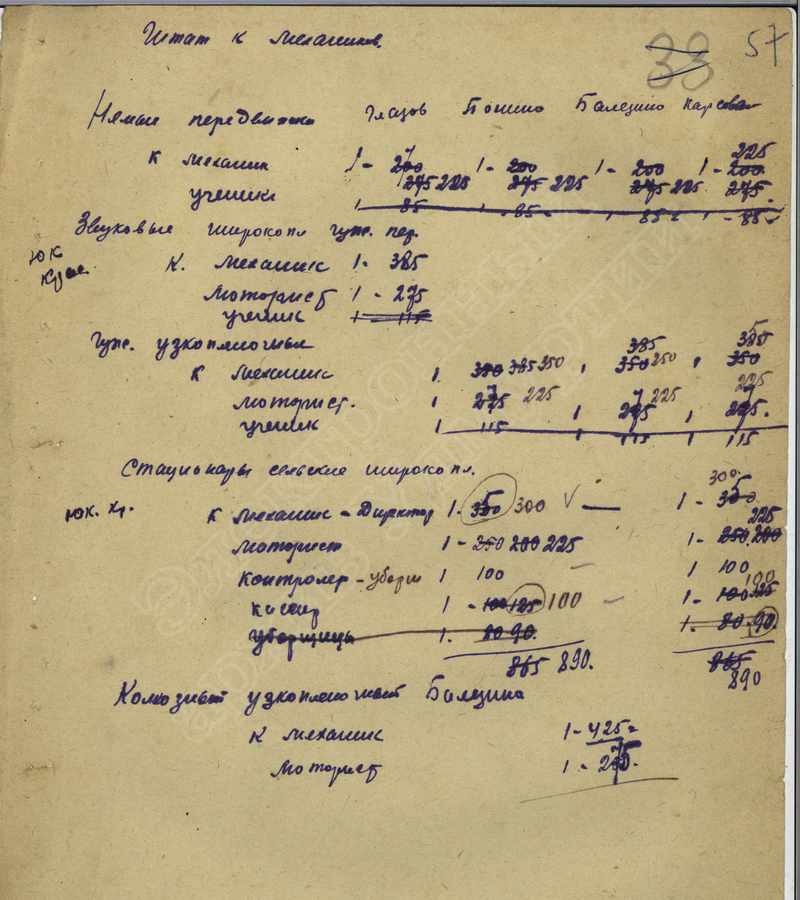 Штат к механиков. 33 57
Немые передвижки Глазов Понино Балезино Карсовай
225
к механик 1- 200 1- 200 1- 200 1- 200
275 225 275 225 275 225 275
ученик 1 85 1- 85- 1 85- 1- 85-
Звуковые широкопл гуж. пер.
К. механик 1- 385
моторист 1- 275
ученик 1 115
Гуж. узкопленочные
385 385
к механик 1 350 385 350 1 350 250 1 350
225
моторист. 1 275 225 1 275 225 1 275.
ученик 1 115 1 115 1 115
Стационары сельские широкопл.
300
к механик - Директор 1- 350 300 1- 300
225
моторист 1- 250 200 225 1- 250 200
контролер - уборщ 1 100 1 100
100
кассир 1- 100 125 100 1- 100 125
уборщицы 1. 80 90. 1. 80- 90.
865 890. 865
890
Колхозный узкопленочный Балезино
к механик 1- 425-
моторист 1- 275.